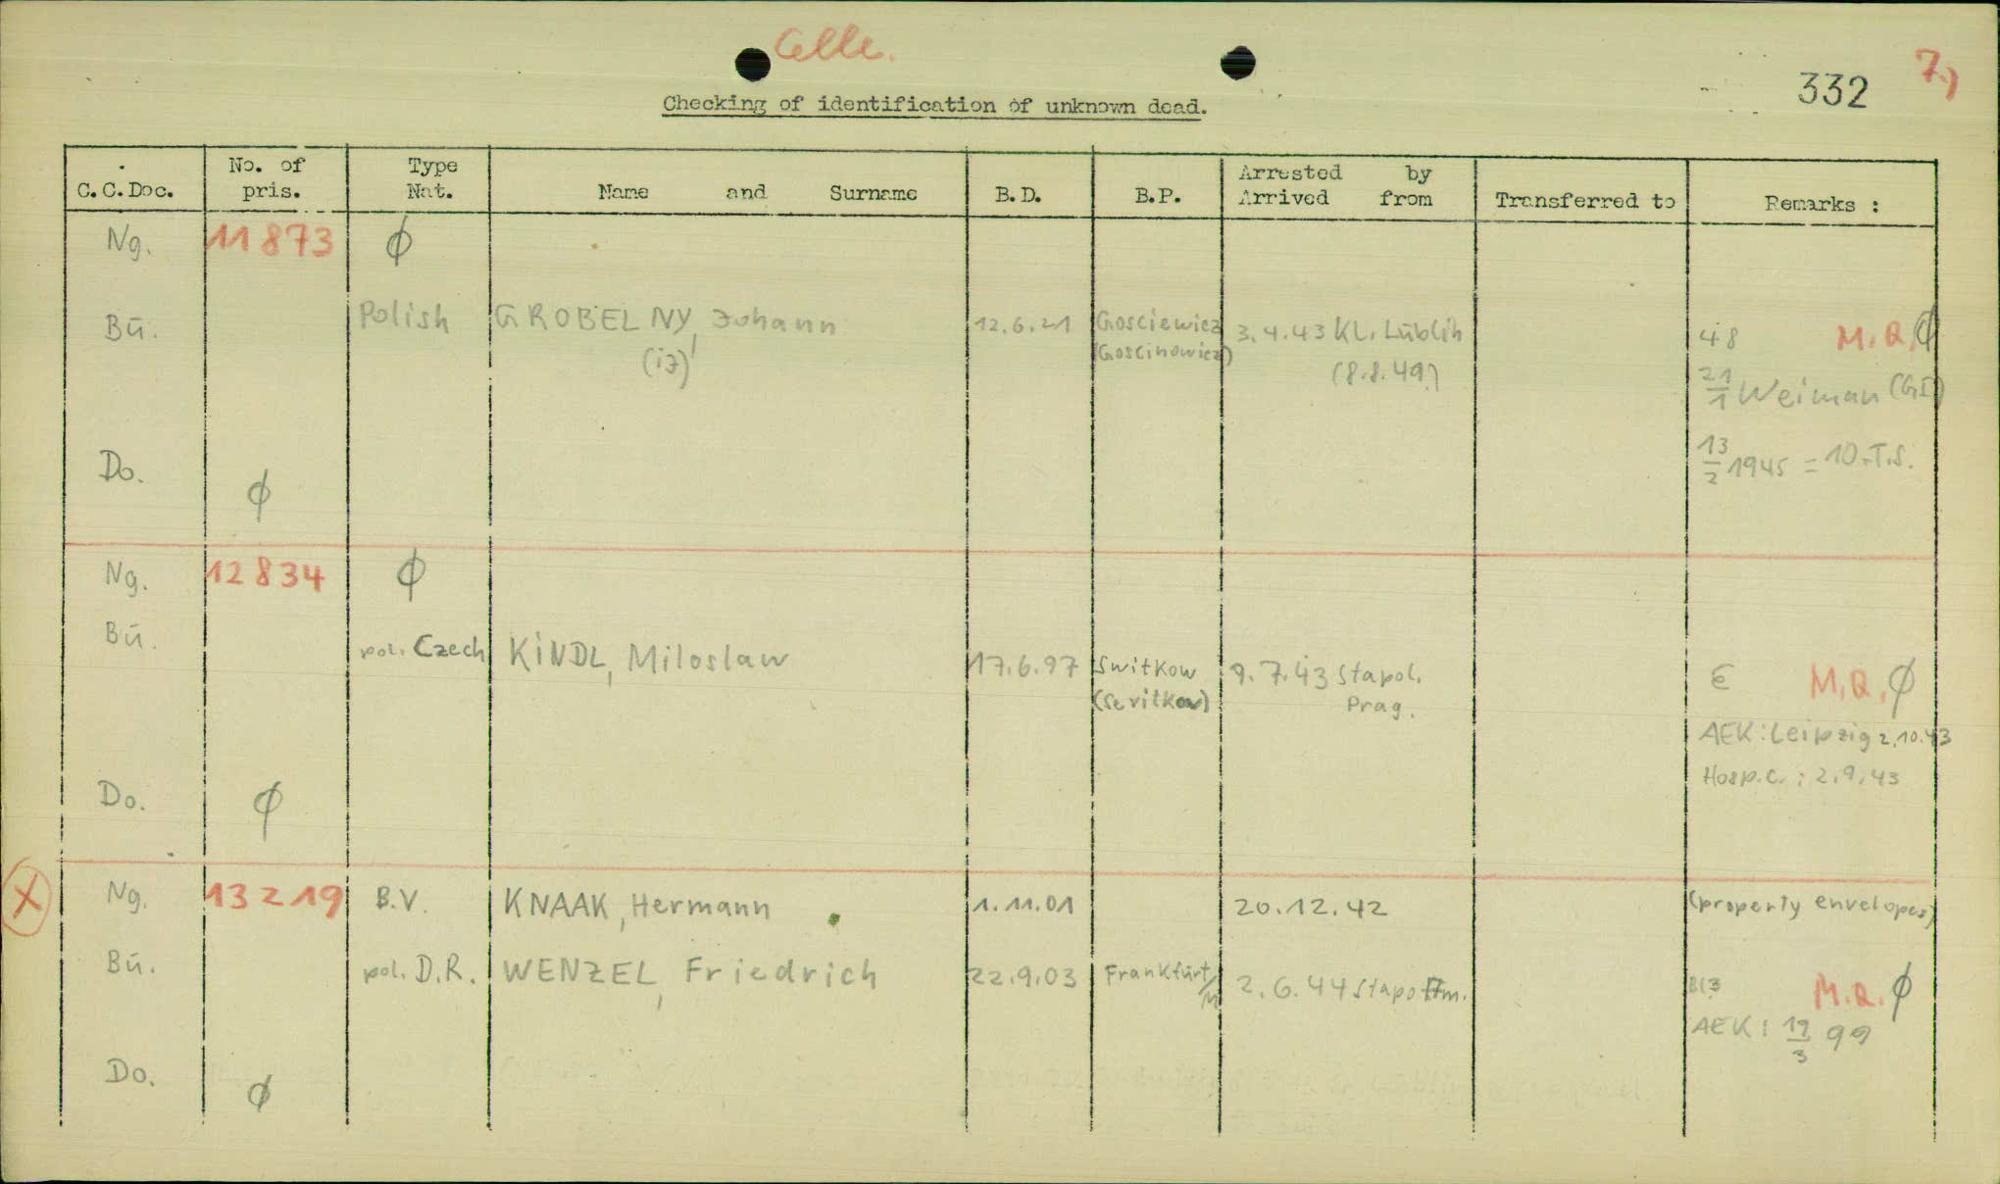 Celle.
332
7.)
Checking of identification of unknown dead.
C.C.Doc. No. of pris. Type Nat. Name and Surname B.D. B.P. Arrested by Arrived from Transferred to Remarks :
Ng. 11873 ϕ
Bü. Polish GROBELNY, Johann 12.6.21 Gosciewicz 3.4.43 KL. Lublin 48 M.Q. ϕ
(ij) (Goscinowicz) (8.8.49?)
21/1 Weimau (GI)
Do. ϕ 13/2 1945 = 10.T.S.
Ng. 12834 ϕ
Bü. pol. Czech KINDL, Miloslaw 17.6.97 Switkow 9.7.43 Stapol. € M.Q. ϕ
(Sevitkow) Prag.
AEK: Leipzig 2.10.43
Hosp.c.: 2.9.43
Do. ϕ
X Ng. 13219 B.V. KNAAK, Hermann 1.11.01 20.12.42 (property envelopes)
Bü. pol. D.R. WENZEL, Friedrich 22.9.03 Frankfurt/M 2.6.44 Stapo Ffm. M.Q. ϕ
AEK: 19/3 99
Do. ϕ